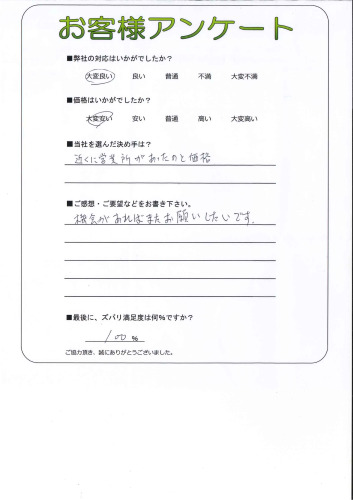 お客様アンケート
■弊社の対応はいかがでしたか？
大変良い 良い 普通 不満 大変不満
■価格はいかがでしたか？
大変安い 安い 普通 高い 大変高い
■当社を選んだ決め手は？
近くに営業所があったのと価格
■ご感想・ご要望などをお書き下さい。
機会があればまたお願いしたいです。
■最後に、ズバリ満足度は何%ですか？
100 %
ご協力頂き、誠にありがとうございました。